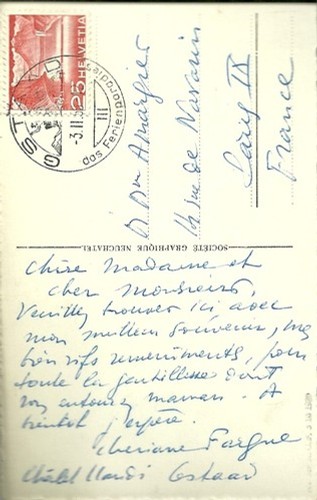 HELVETIA
25
GSTAAD
-3.III
das Feriendorado
III
Amargier
14 rue de Navarin
Paris IX
France
SOCIÉTÉ GRAPHIQUE NEUCHATEL
Chère Madame et
cher Monsieur,
Veuillez trouver ici avec
mon meilleur souvenir, mes
très vifs remerciments, pour
toute la gentillesse dont
vous entourez maman. A
bientôt j'espère.
Fargue
Châlet Gstaad